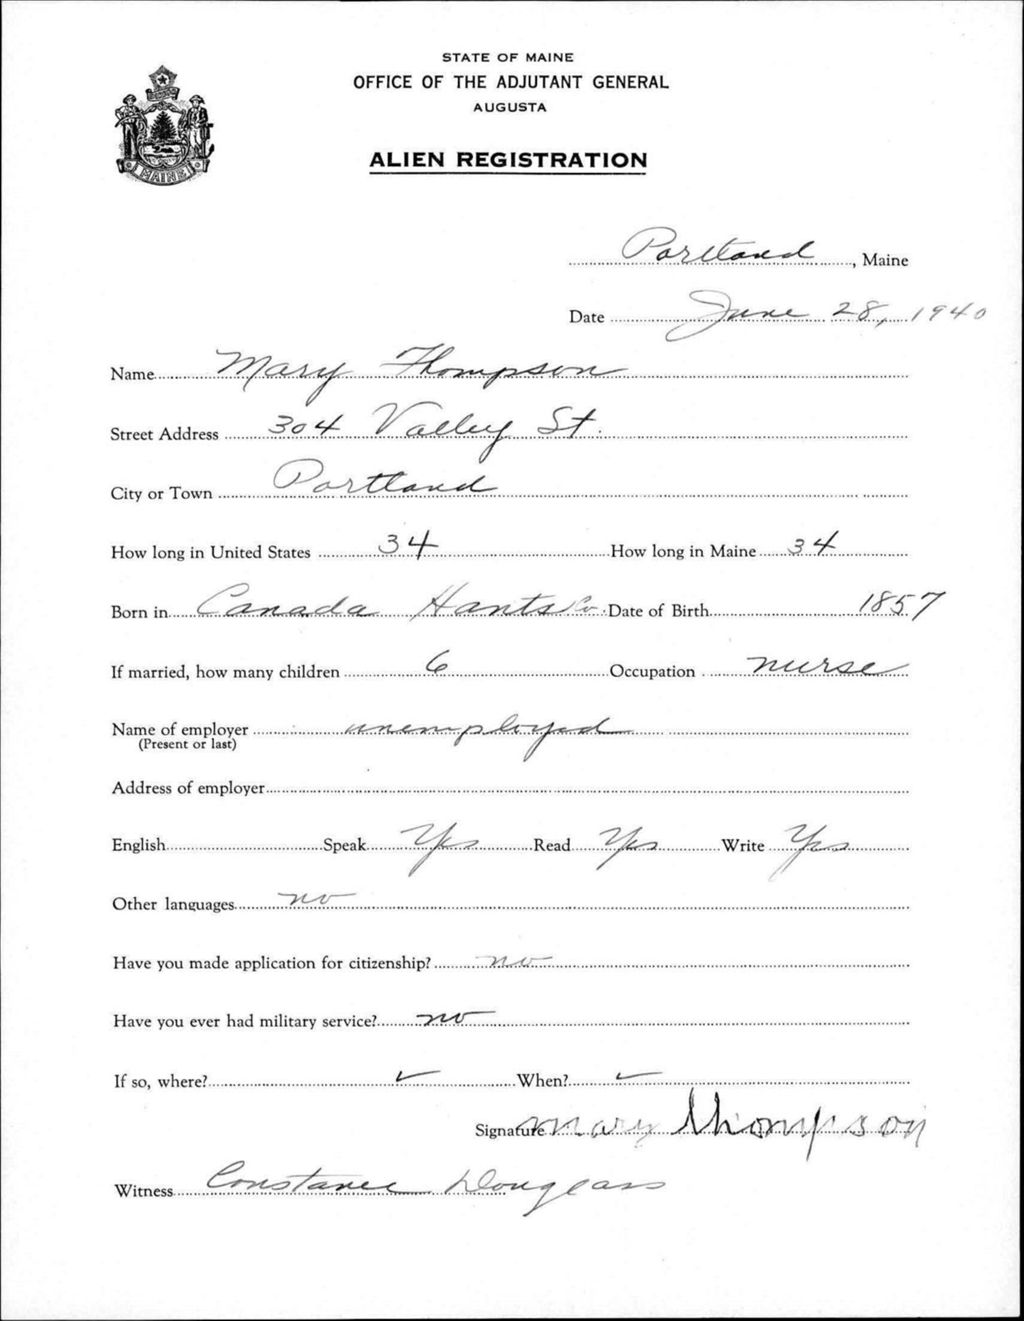 STATE OF MAINE
OFFICE OF THE ADJUTANT GENERAL
AUGUSTA
ALIEN REGISTRATION
MAINE
Portland, Maine
Date June 28, 1940
Name Mary Thompson
Street Address 304 Valley St.
City or Town Portland
How long in United States 34 How long in Maine 34
Born in Canada Hants Co. Date of Birth 1857
If married, how many children 6 Occupation nurse
Name of employer unemployed
(Present or last)
Address of employer
English Speak Yes Read Yes Write Yes
Other languages no
Have you made application for citizenship? no
Have you ever had military service? no
If so, where? ✓ When? ✓
Signature Mary Thompson
Witness Constance Douglass